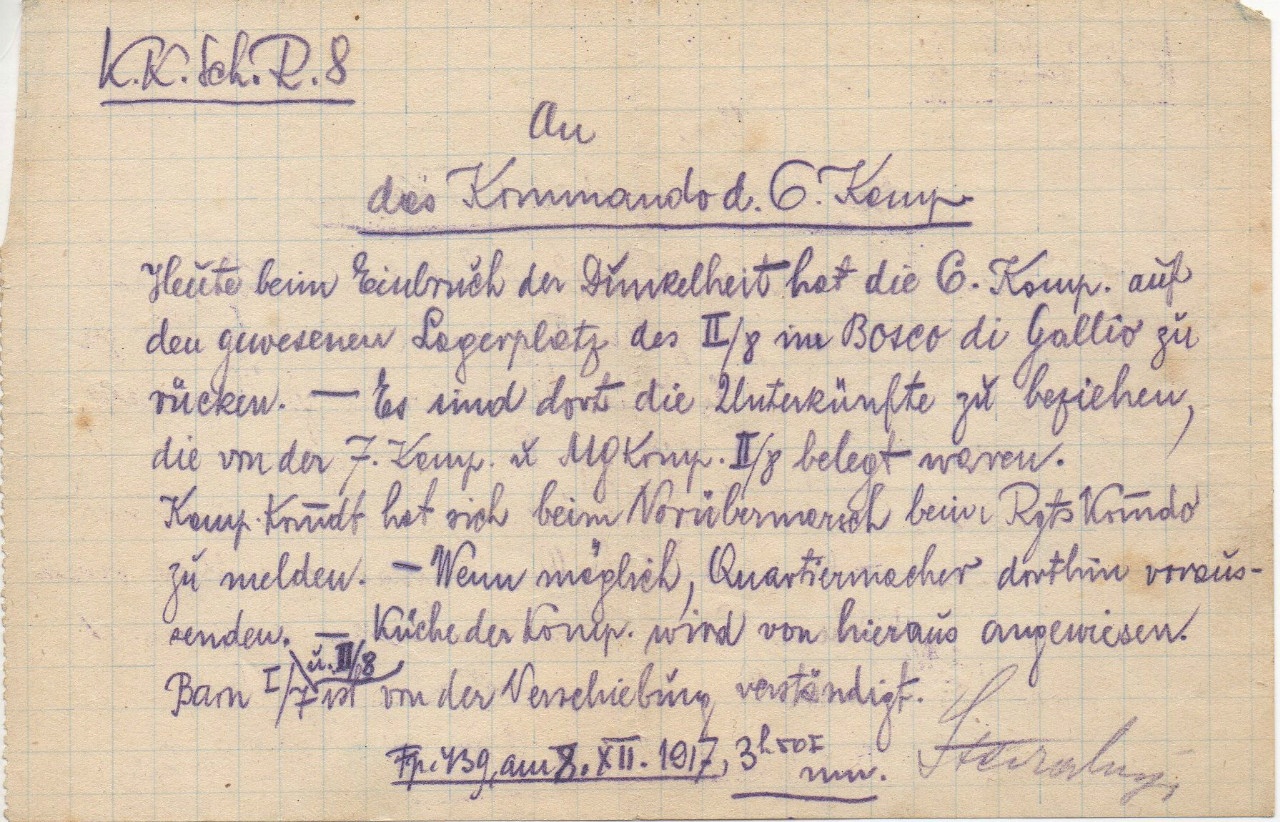 K.K.Sch.R.8
An
das Kommando d. 6. Komp.
Heute beim Einbruch der Dunkelheit hat die 6. Komp. auf
den gewesenen Lagerplatz des II/8 im Bosco di Gallio zu
rücken. — Es sind dort die Unterkünfte zu beziehen,
die von der 7. Komp. u MGKomp. II/8 belegt waren.
Komp. Kmdt hat sich beim Vorübermarsch beim Rgts Kmdo
zu melden. — Wenn möglich, Quartiermacher dorthin voraus-
senden. — Küche der Komp. wird von hieraus angewiesen.
u. II/8
Baon I/7 ist von der Verschiebung verständigt.
Fp. 439, am 8. XII. 1917, 3h
nm.